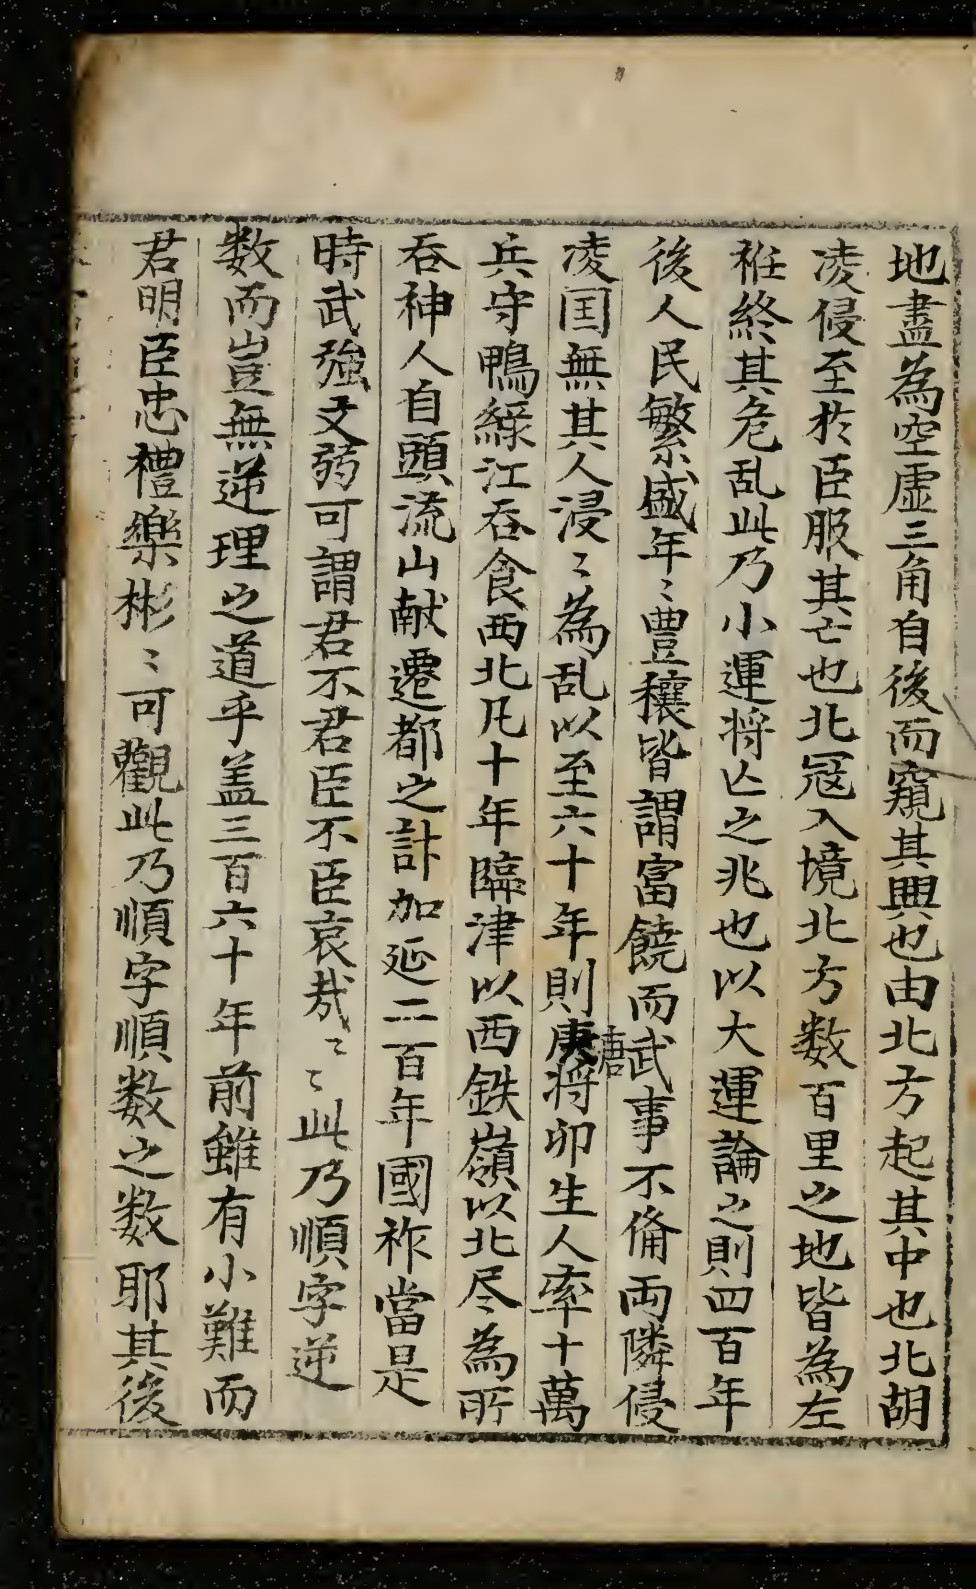 地盡為空虛三角自後而窺其興也由北方起其中也北胡
凌侵至於臣服其亡也北冦入境北方数百里之地皆為左
袵終其危乱此乃小運将亡之兆也以大運論之則四百年
後人民繁盛年〻豊穰皆謂富饒而武事不俻両隣侵
凌囯無其人浸〻為乱以至六十年則庚将卯生人率十萬
唐
兵守鴨綠江吞食西北凡十年臨津以西鉄嶺以北尽為所
吞神人自頭流山献遷都之計加延二百年國祚當是
時武強文弱可謂君不君臣不臣哀㦲〻〻此乃順字逆
数而豈無逆理之道乎盖三百六十年前雖有小難而
君明臣忠禮樂彬〻可觀此乃順字順数之数耶其後